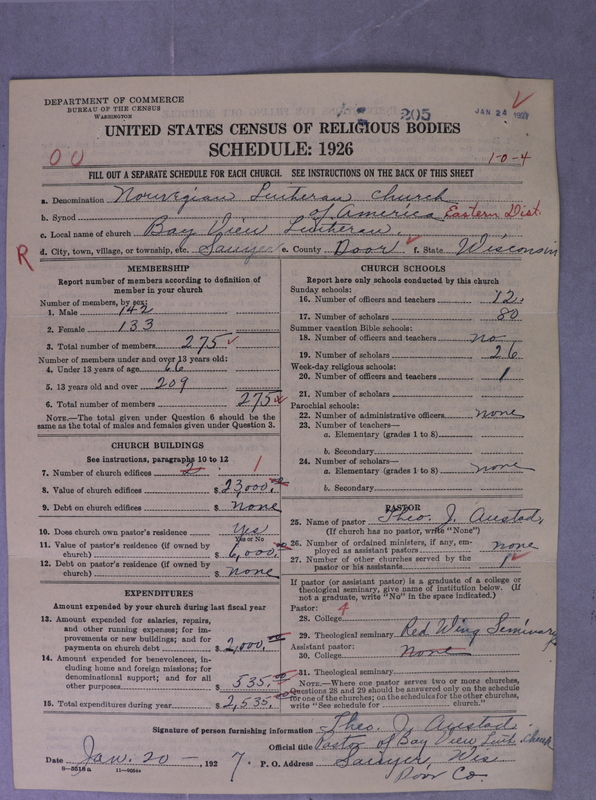 DEPARTMENT OF COMMERCE
BUREAU OF THE CENSUS
WASHINGTON
205
JAN 24 1927
UNITED STATES CENSUS OF RELIGIOUS BODIES
SCHEDULE: 1926
00
1-0-4
FILL OUT A SEPARATE SCHEDULE FOR EACH CHURCH. SEE INSTRUCTIONS ON THE BACK OF THIS SHEET
a. Denomination Norwegian Lutheran Church
b. Synod of America Eastern Dist.
c. Local name of church Bay View Lutheran.
R
d. City, town, village, or township, etc. Sawyer e. County Door f. State Wisconsin
MEMBERSHIP
Report number of members according to definition of member in your church
Number of members, by sex:
1. Male 142
2. Female 133
3. Total number of members 275
Number of members under and over 13 years old:
4. Under 13 years of age 66
5. 13 years old and over 209
6. Total number of members 275
NOTE.—The total given under Question 6 should be the same as the total of males and females given under Question 3.
CHURCH BUILDINGS
See instructions, paragraphs 10 to 12
7. Number of church edifices 2 1
8. Value of church edifices $ 23,000.
9. Debt on church edifices $ none
10. Does church own pastor's residence Yes
Yes or No
11. Value of pastor's residence (if owned by church) $ 6,000.
12. Debt on pastor's residence (if owned by church) $ none
EXPENDITURES
Amount expended by your church during last fiscal year
13. Amount expended for salaries, repairs, and other running expenses; for improvements or new buildings; and for payments on church debt $ 2,000.
14. Amount expended for benevolences, including home and foreign missions; for denominational support; and for all other purposes $ 535.
15. Total expenditures during year $ 2,535.
CHURCH SCHOOLS
Report here only schools conducted by this church
Sunday schools:
16. Number of officers and teachers 12.
17. Number of scholars 80
Summer vacation Bible schools:
18. Number of officers and teachers no
19. Number of scholars 26
Week-day religious schools:
20. Number of officers and teachers 1
21. Number of scholars
Parochial schools:
22. Number of administrative officers none
23. Number of teachers—
a. Elementary (grades 1 to 8)
b. Secondary
24. Number of scholars—
a. Elementary (grades 1 to 8) none
b. Secondary
PASTOR
25. Name of pastor Theo. J. Austad,
(If church has no pastor, write "None")
26. Number of ordained ministers, if any, employed as assistant pastors none
27. Number of other churches served by the pastor or his assistants 1
If pastor (or assistant pastor) is a graduate of a college or theological seminary, give name of institution below. (If not a graduate, write "No" in the space indicated.)
Pastor: 4
28. College
29. Theological seminary Red Wing Seminary
Assistant pastor:
30. College None
31. Theological seminary
NOTE.—Where one pastor serves two or more churches, Questions 28 and 29 should be answered only on the schedule for one of the churches; on the schedules for the other churches, write "See schedule for ........ church."
Signature of person furnishing information Theo. J. Austad.
Official title Pastor of Bay View Luth. Church
Date Jan. 20 —, 1927. P. O. Address Sawyer, Wis
Door Co.
8—3518a 11—9054